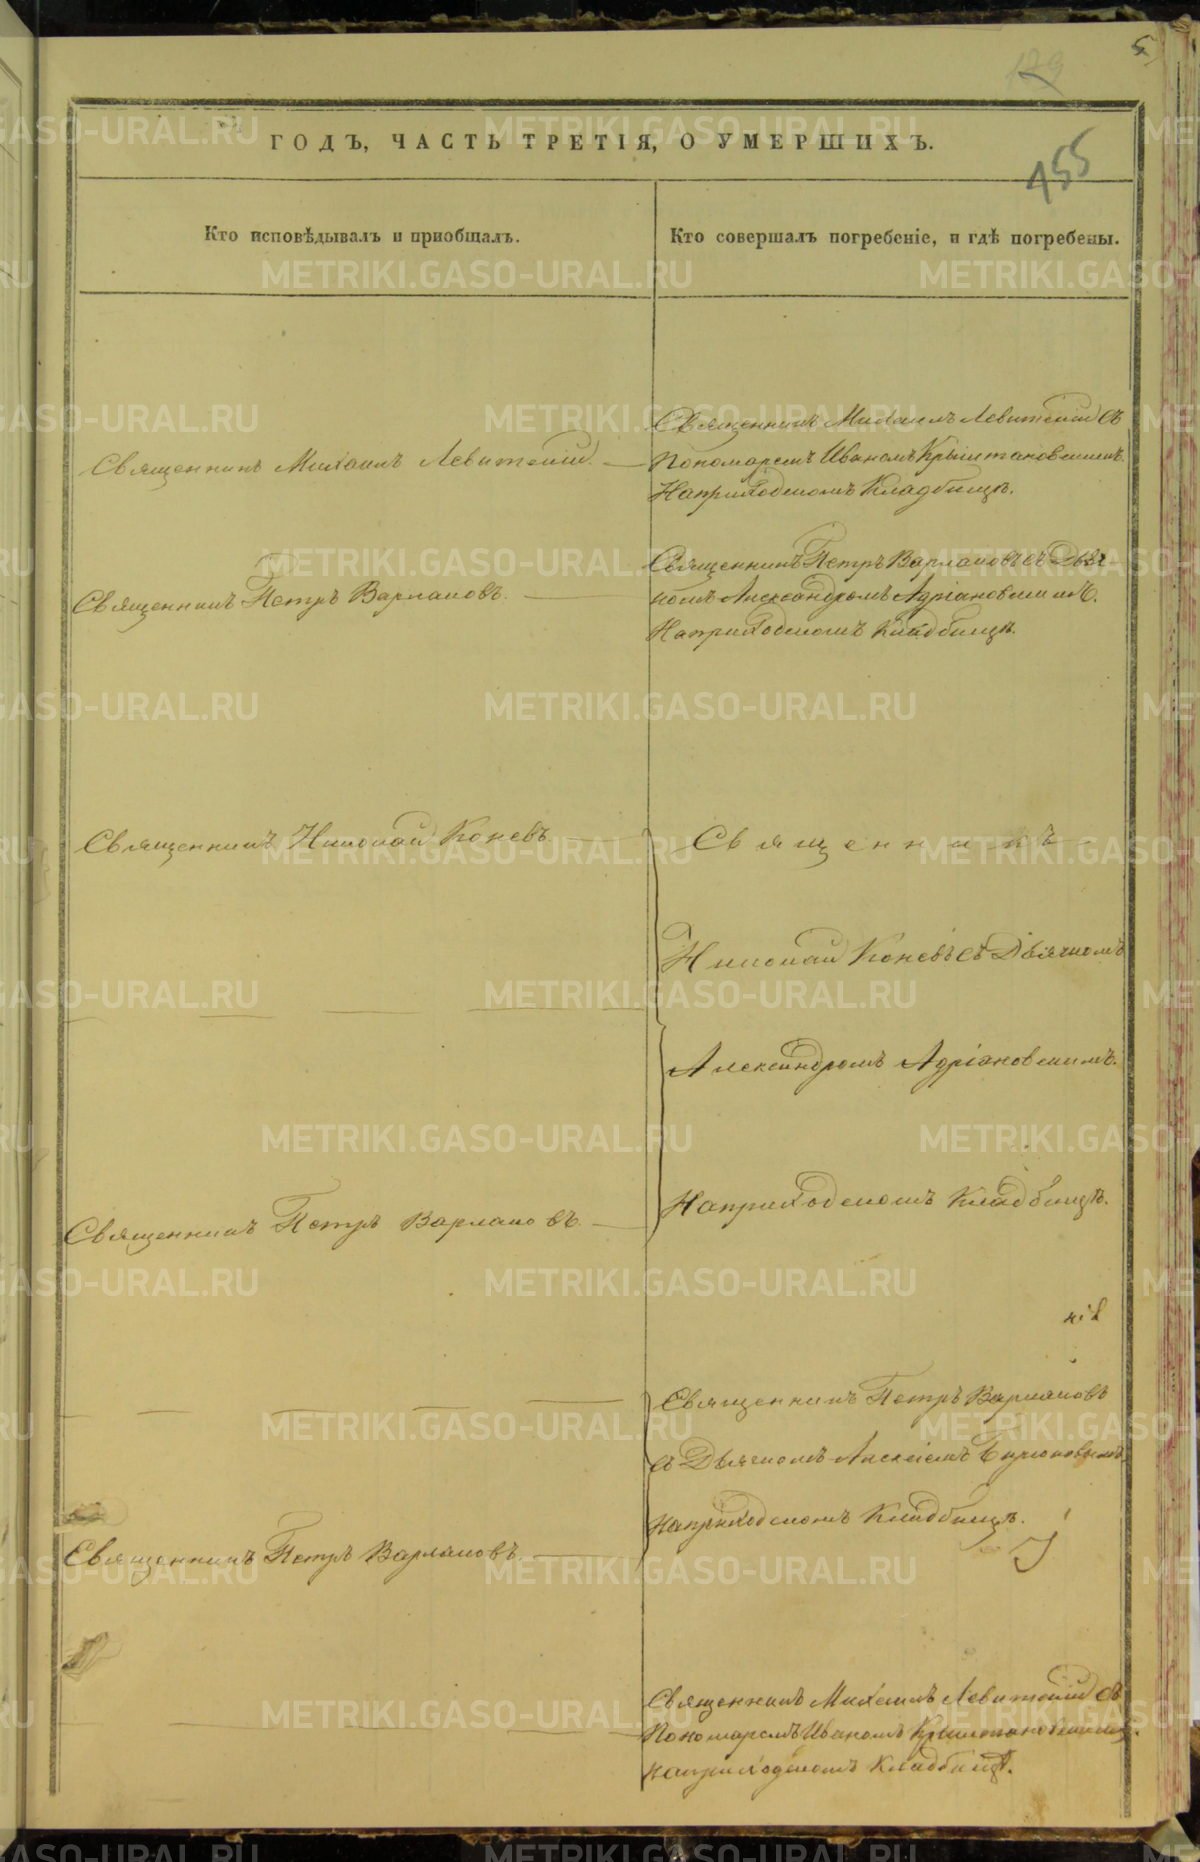 5
129
ГОДЪ, ЧАСТЬ ТРЕТІЯ, О УМЕРШИХЪ.
455
Кто исповѣдывалъ и пріобщалъ.
Кто совершалъ погребеніе, и гдѣ погребены.
Священникъ Михаилъ Левитскій.
Священникъ Михаилъ Левитскій съ
Пономаремъ Иваномъ
На приходскомъ кладбищѣ.
Священникъ Петръ Варлаковъ.
Священникъ Петръ Варлаковъ съ Дьяч-
комъ Александромъ Адріановскимъ.
На приходскомъ кладбищѣ.
Священникъ Николай Коневъ.
Священникъ
Николай Коневъ съ Дьячкомъ
Александромъ Адріановскимъ.
На приходскомъ кладбищѣ.
Священникъ Петръ Варлаковъ.
Священникъ Петръ Варлаковъ
съ Дьячкомъ Алексіемъ
на приходскомъ кладбищѣ.
Священникъ Петръ Варлаковъ.
Священникъ Михаилъ Левитскій съ
Пономаремъ Иваномъ
на приходскомъ кладбищѣ.
METRIKI.GASO-URAL.RU